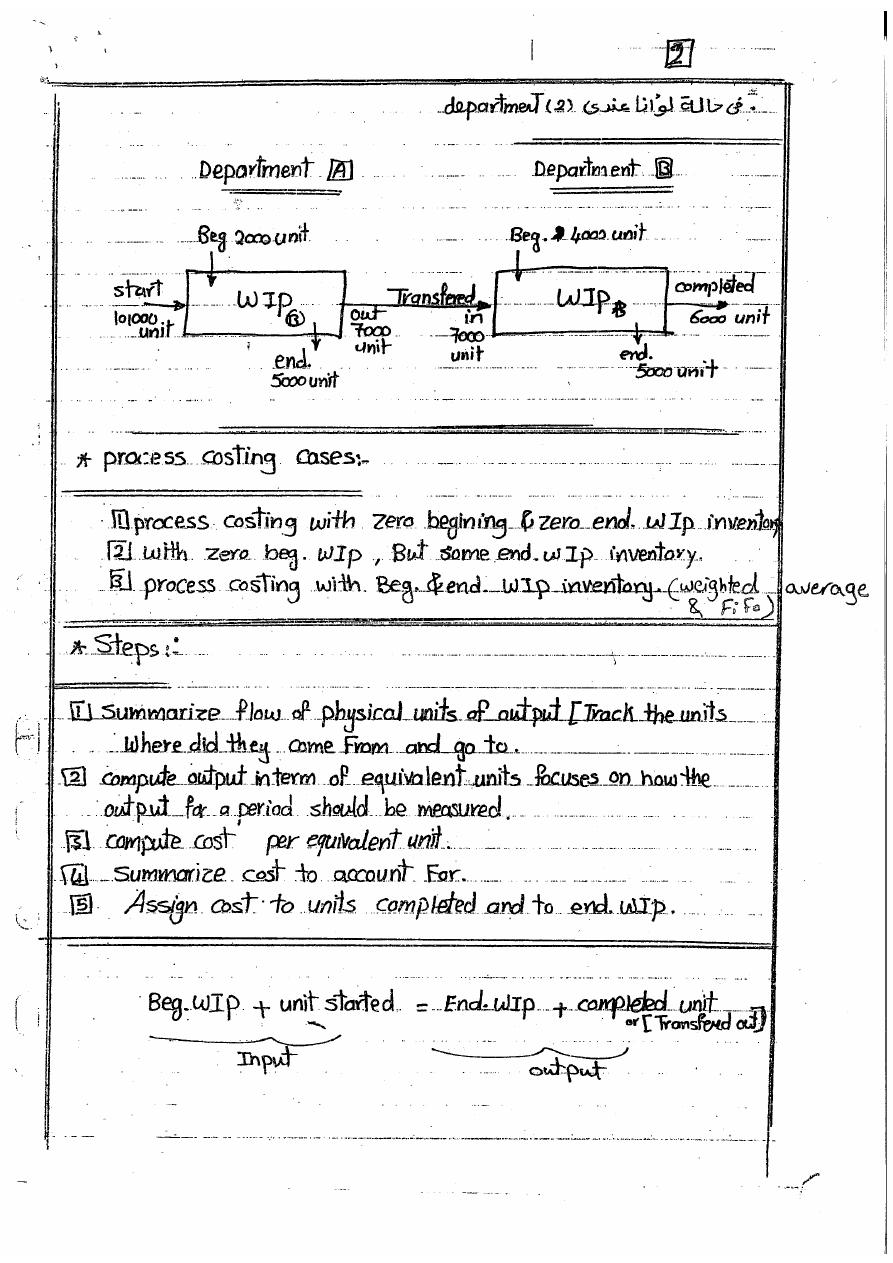 2
* فى حالة لو انا عندى (2) department
Department A
Department B
Beg 2000 unit
Beg. 4000 unit
start
101000
unit
WIP
end.
5000 unit
out
7000
unit
Transfered
in
7000
unit
WIP B
end.
5000 unit
completed
6000 unit
* process costing cases:-
1 process costing with zero begining & zero end. WIp inventory
2 with zero beg. WIp , But some end. WIp inventory.
3 process costing with Beg. & end. WIp inventory. (weighted average
& FiFo)
* Steps:-
1 Summarize flow of physical units of output [Track the units
Where did they come From and go to.
2 compute output interm of equivalent units focuses on how the
output for a period should be measured.
3 compute cost per equivalent unit.
4 Summarize cost to account For.
5 Assign cost to units completed and to end. WIp.
Beg. WIp + unit started = End. WIp + completed unit
or [Transfered out]
Input
output